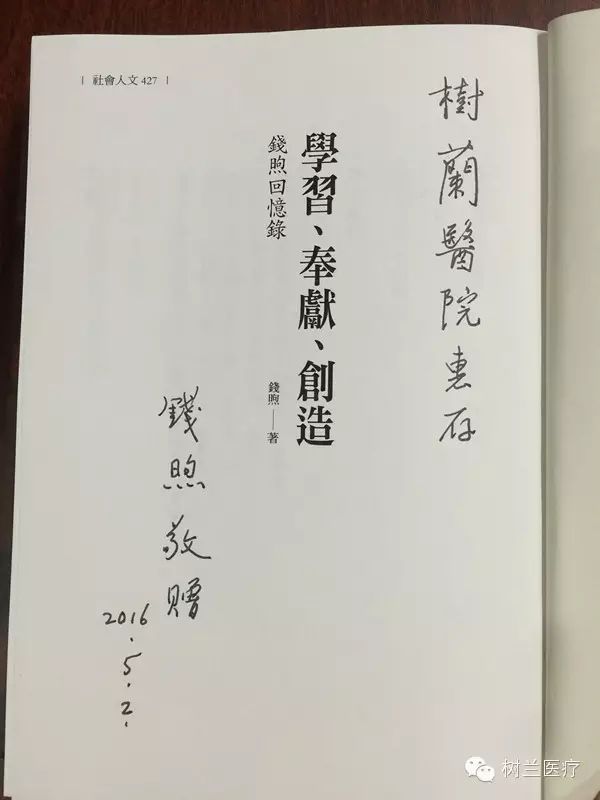 | 社會人文 427 |
樹蘭醫院惠存
學習、奉獻、創造
錢煦回憶錄
錢煦——著
錢煦敬贈
2016.5.2.
树兰医疗